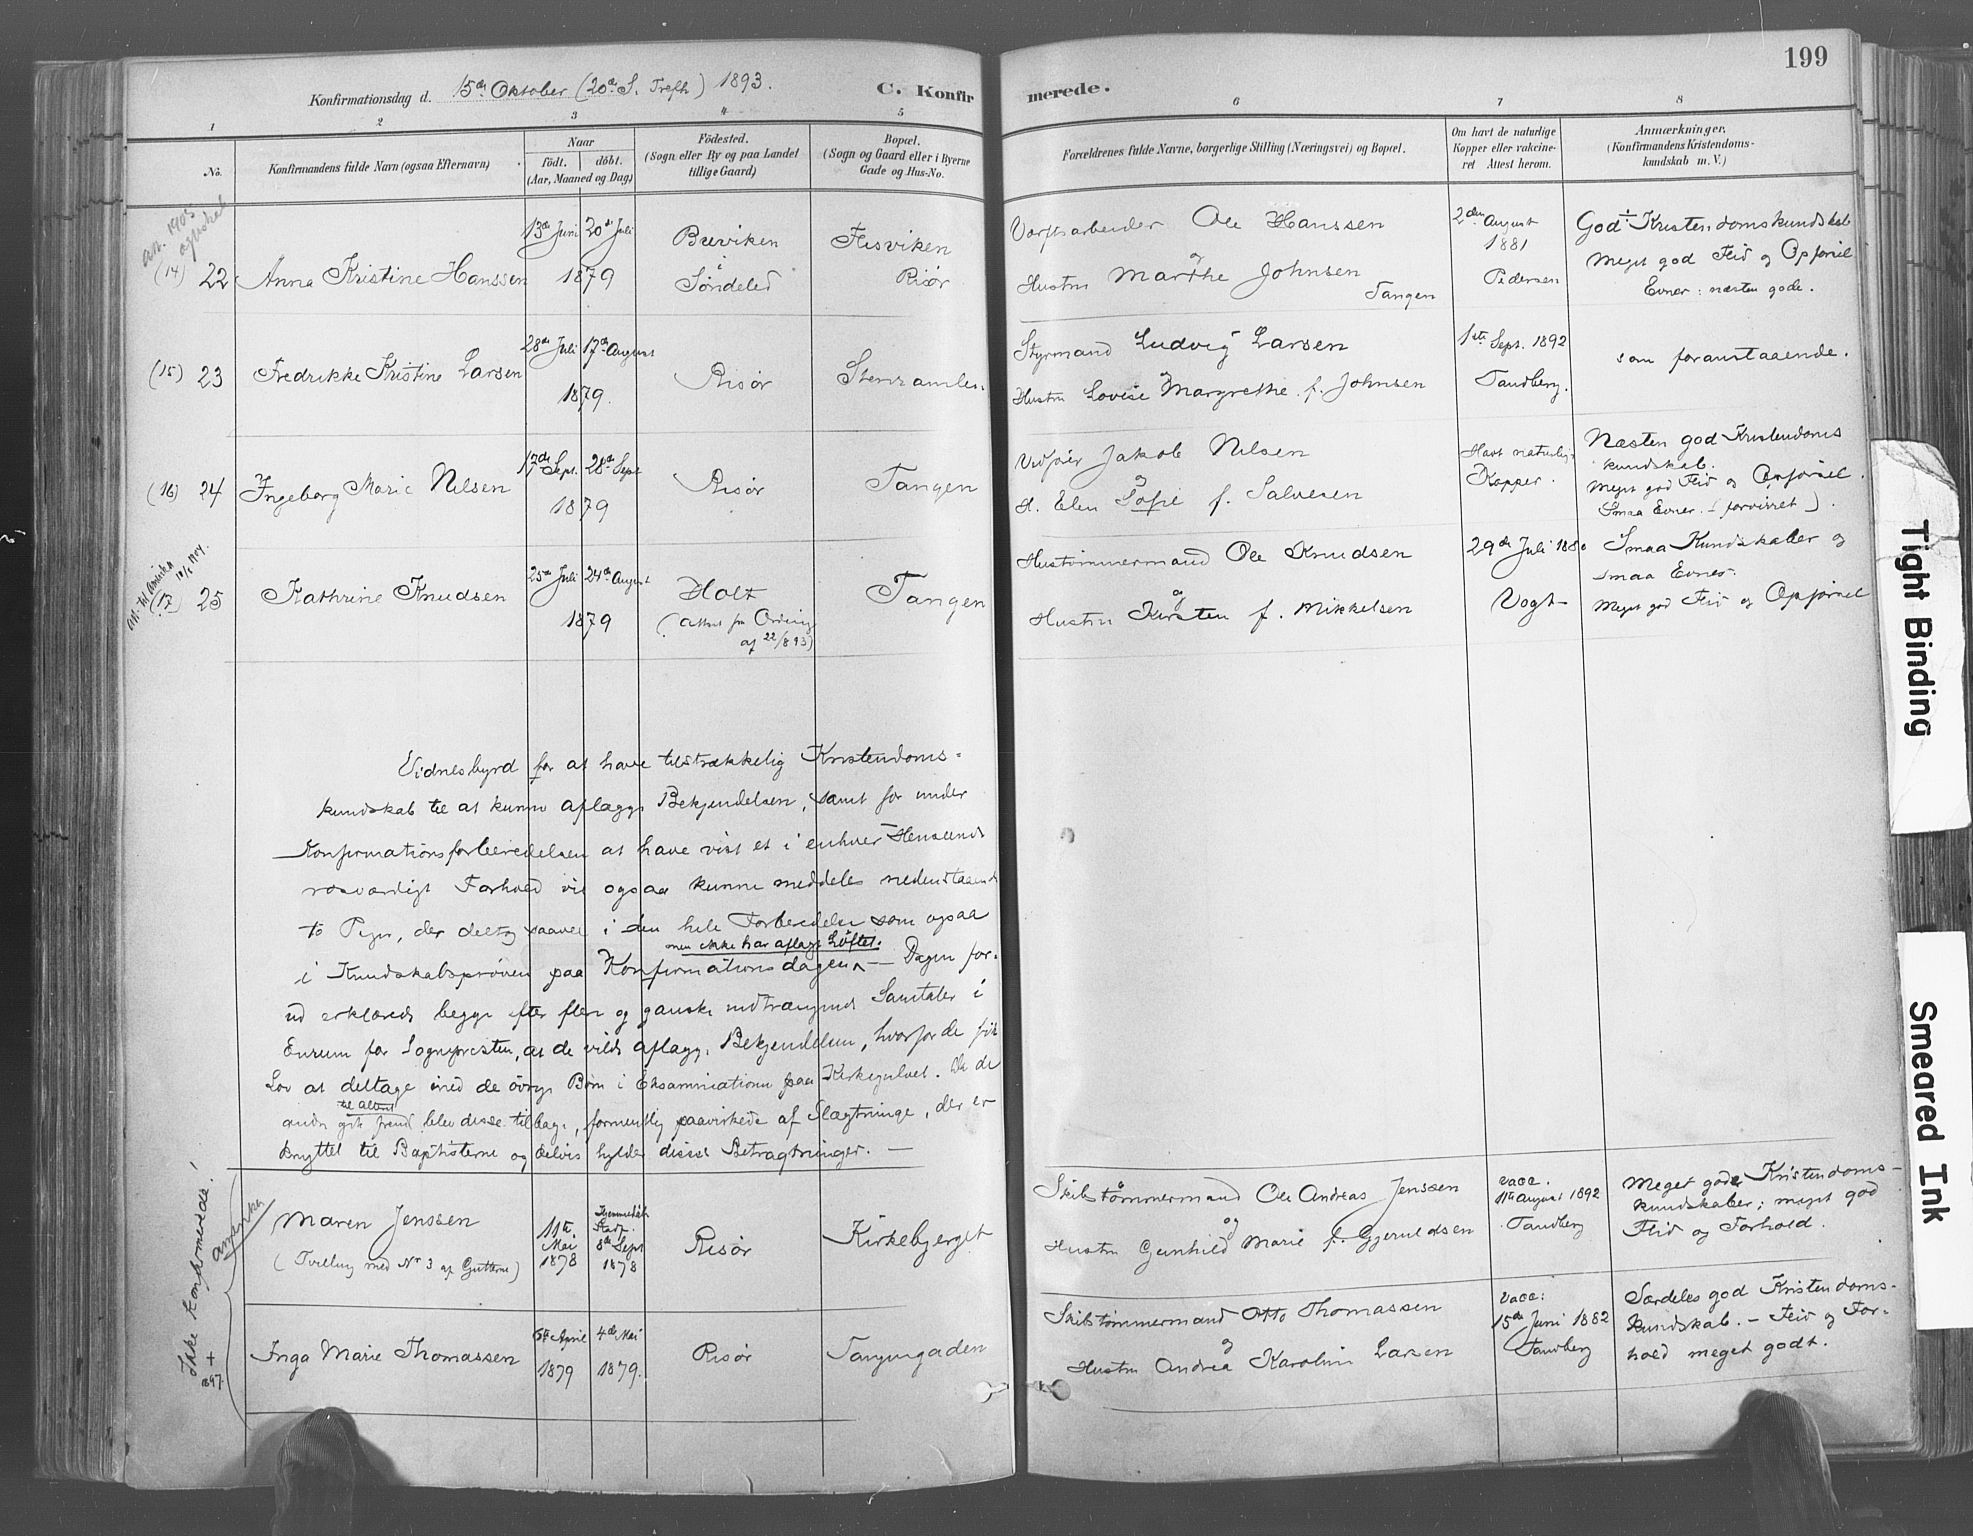 199
Konfirmationsdag d. 15de Oktober (20de S. Trefh) 1893. C. Konfirmerede.
1 2 3 4 5 6 7 8
No.
Konfirmandens fulde Navn (ogsaa Efternavn)
Naar
födt. döbt.
(Aar, Maaned og Dag)
Födested.
(Sogn eller By og paa Landet
tillige Gaard)
Bopæl.
(Sogn og Gaard eller i Byerne
Gade og Hus-No.
Forældrenes fulde Navne, borgerlige Stilling (Næringsvei) og Bopæl.
Om havt de naturlige
Kopper eller vakcine-
ret Attest herom.
Anmærkninger.
(Konfirmandens Kristendoms-
kundskab m. V.)
att. 1905
(14) 22 Anna Kristine Hanssen
13de Juni 20de Juli
1879
Buviken
i
Söndeled
Flisviken
Risör
Værftsarbeider Ole Hanssen
og
Hustru Marthe Johnsen
Tangen
2den August
1881
Pedersen
God ÷ Kristendomskundskab
Meget god Flid og Opförsel
Evner: næsten gode.
(15) 23 Fredrikke Kristine Larsen
28de Juli 17de August
1879.
Risör
Stenramles.
Styrmand Ludvig Larsen
og
Hustru Lovise Margrethe f. Johnsen
1ste Sept. 1892
Tandberg.
som foranstaaende.
(16) 24 Ingeborg Marie Nilsen
17de Sept. 28de Sept
1879
Risör
Tangen
Vedfører Jakob Nilsen
og
H. Elen Sofie f. Salvesen
Havt naturlig.
Kopper.
Næsten god Kristendoms
kundskab.
Meget god Flid og Opförsel.
Smaa Evner. - (forvirret).
Att. til Amerika 1904.
(17) 25 Kathrine Knudsen
25de Juli 24de August
1879
Holt
(Attest fra
af 22/8 93)
Tangen
Hustömmermand Ole Knudsen
og
Hustru Kirsten f. Mikkelsen
29de Juli 1880
Vogt
Smaa Kundskaber og
smaa Evner.
Meget god Flid og Opførsel
Vidnesbyrd for at have tilstrækkelig Kristendoms-
kundskab til at kunne aflægge Bekjendelsen, samt for under
Konfirmationsforberedelsen at have vist et i enhver Henseende
rosværdigt Forhold vil ogsaa kunne meddeles nedenstaaende
to Piger, der deltog saavel i den hele Forberedelse som ogsaa
men ikke har aflagt Löftet.
i Kundskabspröven paa Konfirmationsdagen — Dagen for-
ud erklærede begge efter flere og ganske indtrængende Samtaler i
Enrum for Sognepresten, at de vilde aflægge Bekjendelsen, hvorfor de fik
Lov at deltage med de övrige Börn i Eksaminationen paa Kirkegulvet. Da de
til Alteret
andre gik frem, blev disse tilbage, formentlig paavirkede af Slægtninge, der er
knyttet til Baptisterne og delvis hylder disses Betragtninger. —
Ikke konfirmerede!
Amerika
Maren Jenssen
(Tvilling med Nr 3 af Gutterne)
11te
Mai
1878
Hjemmedöbt
Stadf.
8de Sept
1878
Risör
Kirkebjerget
Skibstömmermand Ole Andreas Jenssen
og
Hustru Gunhild Marie f. Gjeruldsen
vacc.
11te August 1892
Tandberg
Meget gode Kristendoms-
kundskaber; meget god
Flid og Forhold.
+
Inga Marie Thomassen
6te April 4de Mai
1879 1879.
Risör
Tangengaden
Skibstömmermand Otto Thomassen
og
Hustru Andrea Karoline Larsen
vacc:
15de Juni 1882
Tandberg
Særdeles god Kristendoms-
kundskab. - Flid og For-
hold meget godt.
Tight Binding
Smeared Ink